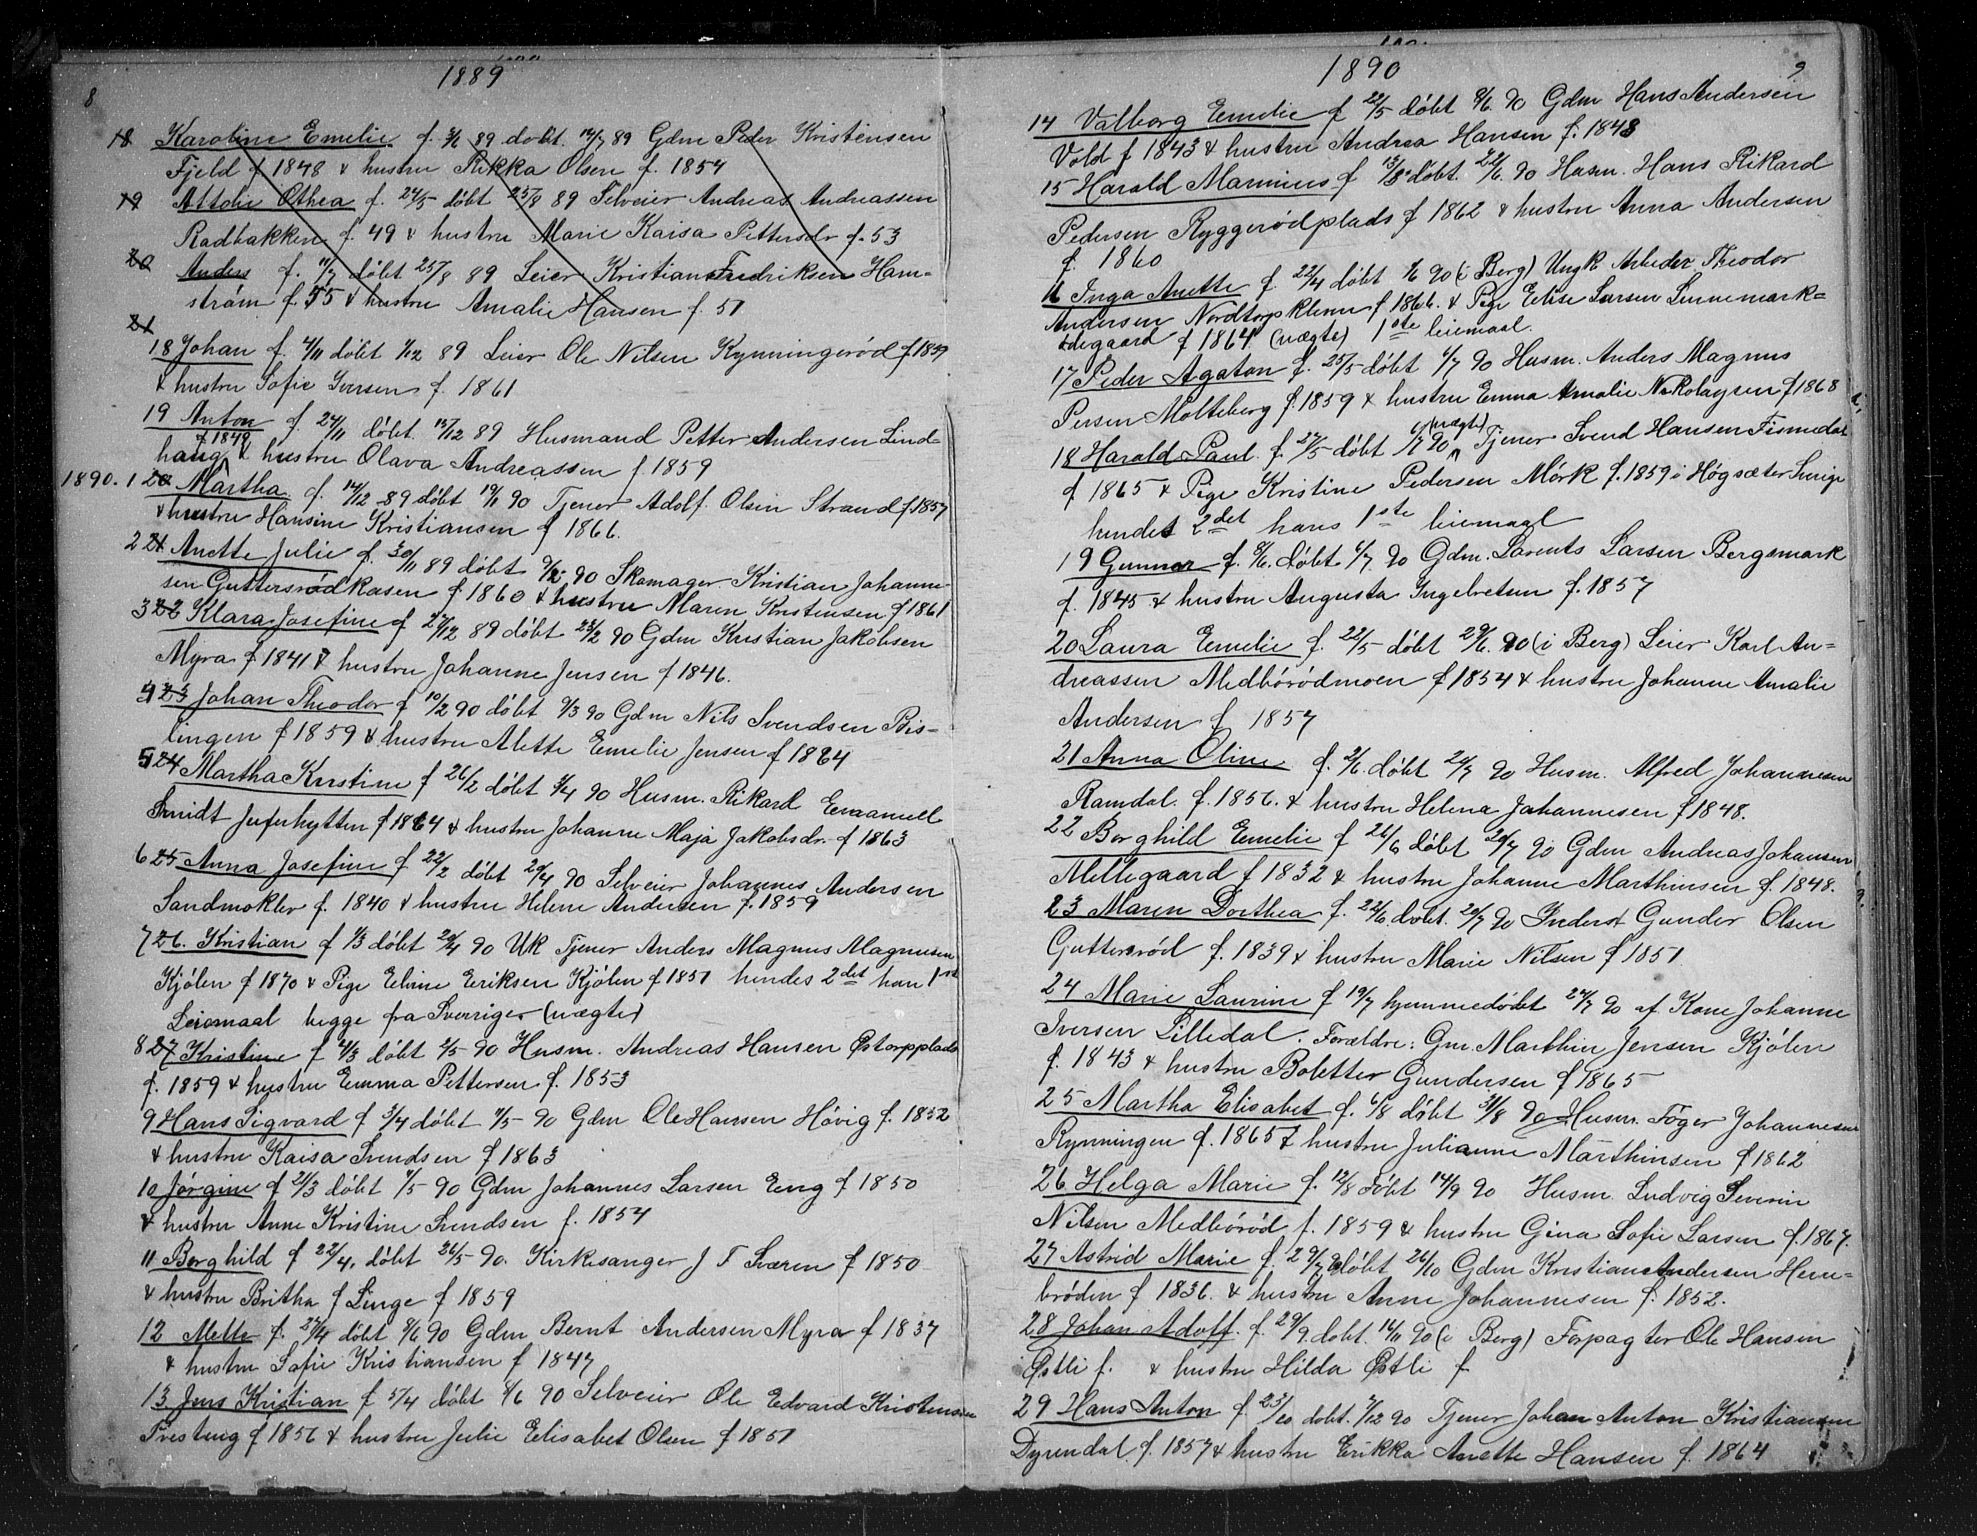 8
1889
18 Karoline Emelie f. 3/6 89 dobt. 14/7 89 Gdm Peder Kristensen
Fjeld f 1848 & hustru Rikka Olsen f. 1854
19 Attolie Othea f. 24/5 døbt 25/8 89 Selveier Andreas Andreassen
Radbakken f. 49 & hustru Marie Kaisa Pettersdr f. 53
20 Anders f. 11/7 døbt 25/8 89 Leier Kristian Fredriksen Ham-
strøm f. 55 & hustru Amalie Hansen f. 51
21
18 Johan f. 4/11 døbt 1/12 89 Leier Ole Nilsen Rynningerød f 1859
& hustru Sofie Iversen f. 1861
19 Anton f. 24/11 døbt. 15/12 89 Husmand Petter Andersen Lind-
haug f 1849 & hustru Olava Andreassen f. 1859
1890. 1 20 Martha f. 14/12 89 døbt 19/1 90 Tjener Adolf Olsen Strand f 1857
& hustru Hansine Kristiansen f 1866.
2 21 Anette Julie f. 30/11 89 døbt 9/2 90 Skomager Kristian Johanne-
sen Guttersrødkasen f 1860 & hustru Maren Kristensen f 1861
3 22 Klara Josefine f 27/12 89 døbt 23/2 90 Gdm Kristian Jakobsen
Myra f 1841 & hustru Johanne Jensen f 1846.
4 23 Johan Theodor f 10/2 90 døbt 9/3 90 Gdm Nils Svendsen Bis-
lingen f 1859 & hustru Alette Emelie Jensen f 1864
5 24 Martha Kristine f 26/2 døbt 4/4 90 Husm. Rikard Emanuel
Smidt Juferhytten f 1864 & hustru Johanne Maja Jakobsdr. f 1863
6 25 Anna Josefine f 22/2 døbt 20/4 90 Selveier Johannes Andersen
Sandmoklev f. 1840 & hustru Helene Andersen f. 1859
7 26. Kristian f 1/3 døbt 20/4 90 UK Tjener Anders Magnus Magnusen
Kjølen f 1870 & Pige Elvine Eriksen Kjølen f 1851 hendes 2det han 1st
Leiemaal begge fra Sverriger (uægte)
8 27 Kristine f 4/3 døbt 4/5 90 Husm. Andreas Hansen Østorpplads
f. 1859 & hustru Emma Pettersen f. 1853
9 Hans Sigvard f 3/4 døbt 4/5 90 Gdm Ole Hansen Høvig f. 1832
& hustru Kaisa Svendsen f 1863
10 Jørgine f 21/3 døbt 4/5 90 Gdm Johannes Larsen Eng f 1850
& hustru Anne Kristine Svendsen f. 1854
11 Borghild f 22/4, døbt 26/5 90. Kirkesanger J T Sværen f 1850
& hustru Britha f Linge f 1859
12 Mette f. 27/4 døbt 8/6 90 Gdm Bernt Andersen Myra f 1837
& hustru Sofie Kristiansen f 1847
13 Jens Kristian f 5/4 døbt 8/6 90 Selveier Ole Edvard Kristensen
Presteng f 1856 & hustru Julie Elisabet Olsen f 1851
1890
9
14 Valborg Emelie f 22/5 døbt 8/6 90 Gdm Hans Andersen
Vold f 1843 & hustru Andrea Hansen f. 1848
15 Harald Marinius f 13/3 døbt. 22/6. 90 Husm. Hans Rikard
Pedersen Ryggerødplads f 1862 & hustru Anna Andersen
f. 1860
16 Inga Anette f. 22/4 døbt 1/6 90 (i Berg) Ungk Arbeder Theodor
Andersen Nordtorpklenn f 1866. & Pige Elise Larsen Linnemark=
ødegaard f 1864 (uægte) 1ste leiemaal.
17 Peder Agaton f. 25/5 døbt 6/7 90 Husm. Anders Magnus
Persen Molteberg f. 1859 & hustru Emma Amalie Nikolaysen f 1868
18 Harald Paul f. 27/5 døbt 6/7 90 (uægte) Tjener Svend Hansen Fismedal
f 1865 & Pige Kristine Pedersen Mørk f. 1859 i Høgsæter Sverige
hendes 2det hans 1ste leiemaal
19 Gunnar f. 8/6. døbt 6/7 90 Gdm. Larents Larsen Bergsmark
f. 1845 & hustru Augusta Ingebretsen f. 1857
20 Laura Emelie f. 22/5 døbt 29/6. 90 (i Berg) Leier Karl An=
dreassen Medbørødmoen f 1854 & hustru Johanne Amalie
Andersen f 1857
21 Anna Oline f. 2/6. døbt 20/7 90 Husm. Alfred Johannesen
Ramdal. f. 1856. & hustru Helena Johannesen f 1848.
22 Borghild Emelie f 26/6 døbt 20/7 90 Gdm Andreas Johansen
Mellegaard f 1832 & hustru Johanne Marthinsen f. 1848.
23 Maren Dorthea f. 22/6. døbt. 20/7 90 Inderst Gunder Olsen
Guttersrød f. 1839 & hustru Marie Nilsen f 1851
24 Marie Laurine f 19/7 hjemmedøbt 27/7 90 af Kone Johanne
Iversen Lilledal. Forældre: Gm. Marthin Jensen Kjølen
f. 1843 & hustru Bolette Gundersen f 1865
25 Martha Elisabet f. 6/8 døbt 31/8 90 Husm. Føger Johannesen
Rynningen f. 1865 & hustru Julianne Marthinsen f 1862
26 Helga Marie f. 12/8 døbt 14/9 90 Husm. Ludvig Severin
Nilsen Medbørød f. 1859 & hustru Gina Sofie Larsen f. 1867.
27 Astrid Marie f. 29/9 døbt 26/10 Gdm Kristian Andersen Hern=
brøden f 1836. & hustru Anne Johannesen f. 1852.
28 Johan Adolf f. 29/9 døbt. 16/11 90 (i Berg) Forpagter Ole Hansen
Østli f. & hustru Hilda Østli f
29 Hans Anton f 23/10 døbt. 7/12 90 Tjener Johan Anton Kristiansen
Dyrendal f. 1857 & hustru Erikka Anette Hansen f. 1864